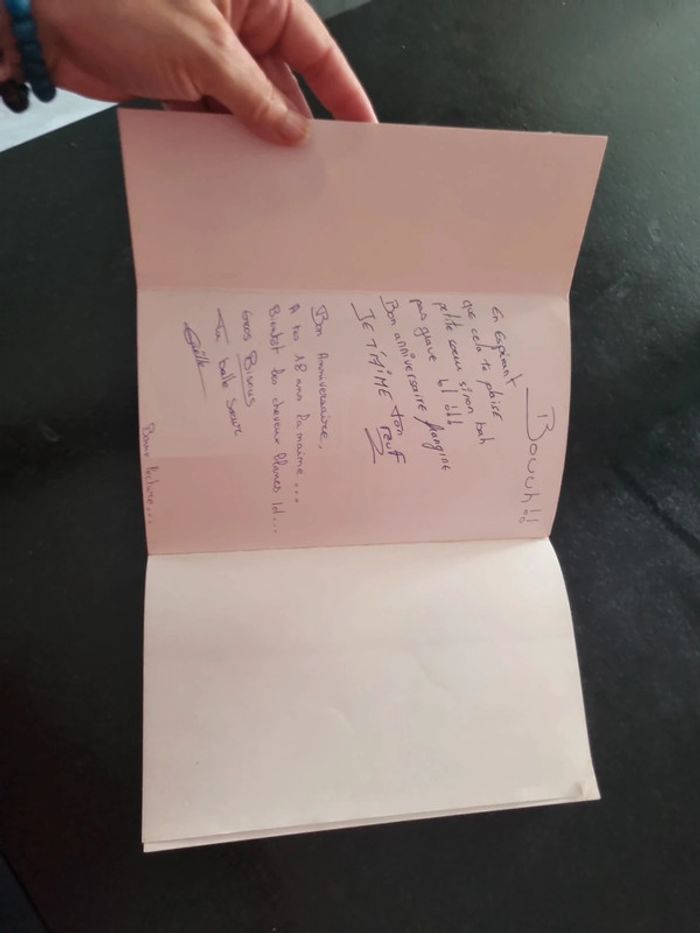 Bouuh!!
En Espérant
que cela te plaise
petite sœur sinon bah
pas grave lol
Bon anniversaire frangine
JE T'AIME ton
Bon Anniversaire,
A tes 18 ans la maime...
Bientôt les cheveux blancs ld...
Gros Bisous
Ta belle sœur
Bonne lecture...